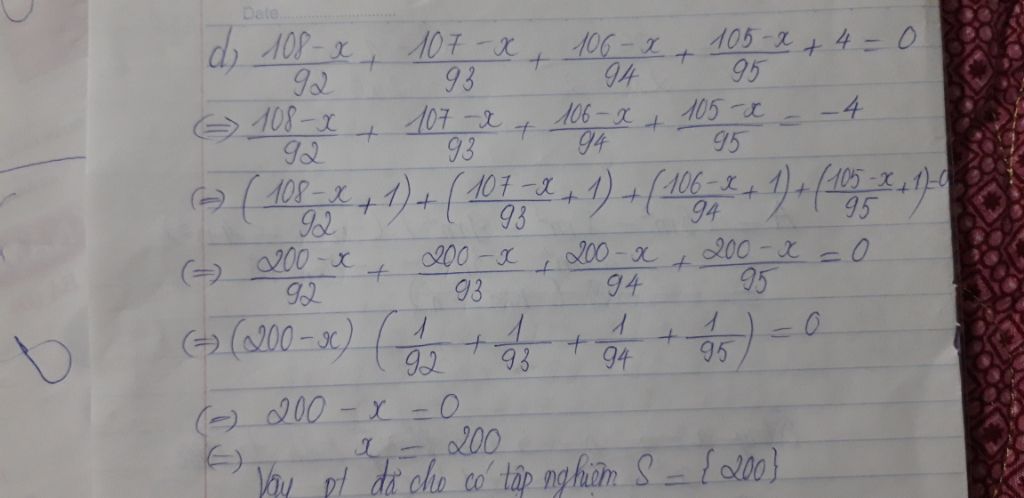 Date
d) (108-x)/92 + (107-x)/93 + (106-x)/94 + (105-x)/95 + 4 = 0
(=) (108-x)/92 + (107-x)/93 + (106-x)/94 + (105-x)/95 = -4
(=) ((108-x)/92 + 1) + ((107-x)/93 + 1) + ((106-x)/94 + 1) + ((105-x)/95 + 1) = 0
(=) (200-x)/92 + (200-x)/93 + (200-x)/94 + (200-x)/95 = 0
(=) (200-x) (1/92 + 1/93 + 1/94 + 1/95) = 0
(=) 200 - x = 0
(=) x = 200
Vậy pt đã cho có tập nghiệm S = {200}